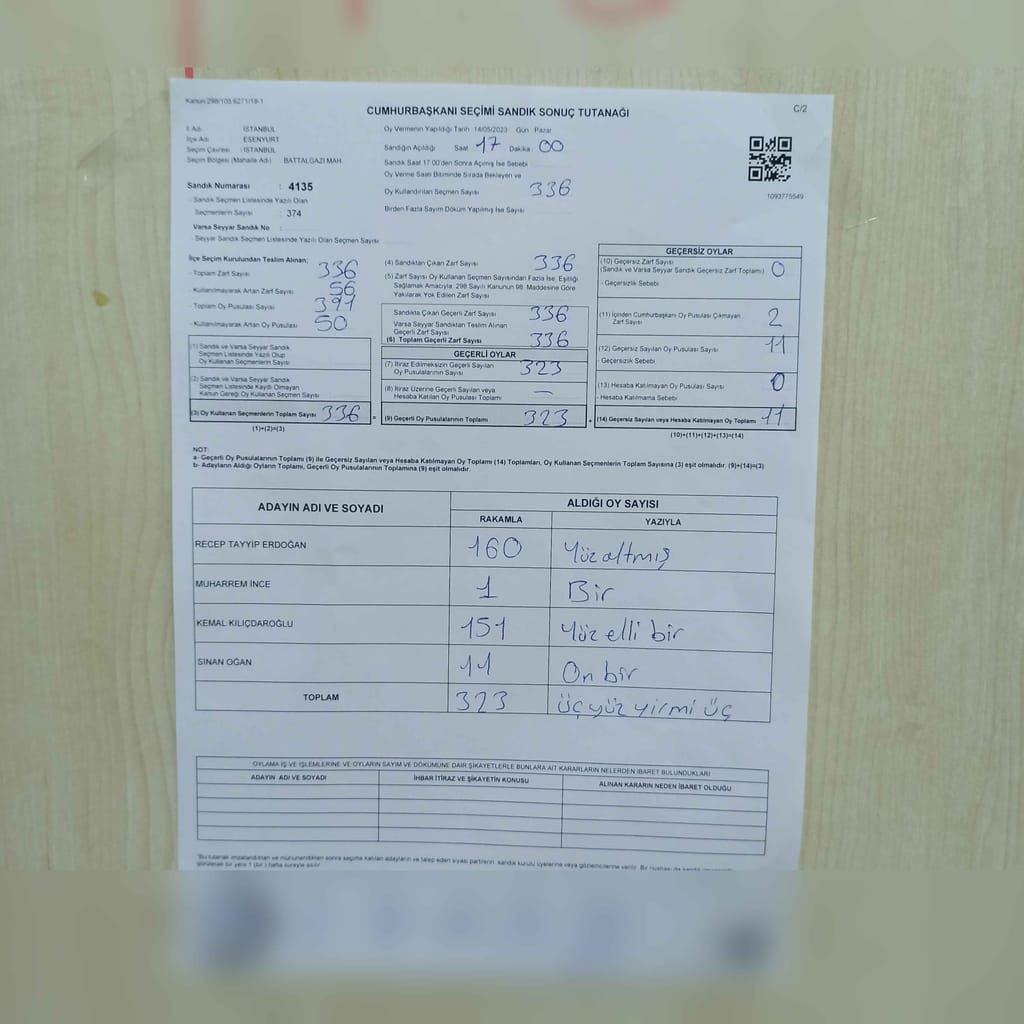 Kanun:298/103.6271/18-1
C/2
CUMHURBAŞKANI SEÇİMİ SANDIK SONUÇ TUTANAĞI
İl Adı : İSTANBUL
İlçe Adı : ESENYURT
Seçim Çevresi : İSTANBUL
Seçim Bölgesi (Mahalle Adı) : BATTALGAZİ MAH.
Sandık Numarası : 4135
- Sandık Seçmen Listesinde Yazılı Olan
Seçmenlerin Sayısı : 374
Varsa Seyyar Sandık No :
- Seyyar Sandık Seçmen Listesinde Yazılı Olan Seçmen Sayısı
Oy Vermenin Yapıldığı Tarih 14/05/2023 Gün Pazar
Sandığın Açıldığı Saat 17 Dakika 00
Sandık Saat 17:00'den Sonra Açılmış İse Sebebi
Oy Verme Saati Bitiminde Sırada Bekleyen ve
Oy Kullandırılan Seçmen Sayısı 336
Birden Fazla Sayım Döküm Yapılmış İse Sayısı
1093775549
İlçe Seçim Kurulundan Teslim Alınan;
- Toplam Zarf Sayısı 336
- Kullanılmayarak Artan Zarf Sayısı 56
- Toplam Oy Pusulası Sayısı 391
- Kullanılmayarak Artan Oy Pusulası 50
(1) Sandık ve Varsa Seyyar Sandık
Seçmen Listesinde Yazılı Olup
Oy Kullanan Seçmenlerin Sayısı
(2) Sandık ve Varsa Seyyar Sandık
Seçmen Listesinde Kayıtlı Olmayan
Kanun Gereği Oy Kullanan Seçmen Sayısı
(3) Oy Kullanan Seçmenlerin Toplam Sayısı 336 =
(1)+(2)=(3)
(4) Sandıktan Çıkan Zarf Sayısı 336
(5) Zarf Sayısı Oy Kullanan Seçmen Sayısından Fazla İse, Eşitliği
Sağlamak Amacıyla, 298 Sayılı Kanunun 98. Maddesine Göre
Yakılarak Yok Edilen Zarf Sayısı
Sandıkta Çıkan Geçerli Zarf Sayısı 336
Varsa Seyyar Sandıktan Teslim Alınan
Geçerli Zarf Sayısı
(6) Toplam Geçerli Zarf Sayısı 336
GEÇERLİ OYLAR
(7) İtiraz Edilmeksizin Geçerli Sayılan
Oy Pusulalarının Sayısı 323
(8) İtiraz Üzerine Geçerli Sayılan veya
Hesaba Katılan Oy Pusulası Toplamı —
(9) Geçerli Oy Pusulalarının Toplamı 323 +
GEÇERSİZ OYLAR
(10) Geçersiz Zarf Sayısı
(Sandık ve Varsa Seyyar Sandık Geçersiz Zarf Toplamı) 0
- Geçersizlik Sebebi
(11) İçinden Cumhurbaşkanı Oy Pusulası Çıkmayan
Zarf Sayısı 2
(12) Geçersiz Sayılan Oy Pusulası Sayısı 11
- Geçersizlik Sebebi
(13) Hesaba Katılmayan Oy Pusulası Sayısı 0
- Hesaba Katılmama Sebebi
(14) Geçersiz Sayılan veya Hesaba Katılmayan Oy Toplamı 11
(10)+(11)+(12)+(13)=(14)
NOT:
a- Geçerli Oy Pusulaları Toplamı (9) ile Geçersiz Sayılan veya Hesaba Katılmayan Oy Toplamı (14) Toplamları, Oy Kullanan Seçmenlerin Toplam Sayısına (3) eşit olmalıdır. (9)+(14)=(3)
b- Adayların Aldığı Oyların Toplamı, Geçerli Oy Pusulalarının Toplamına (9) eşit olmalıdır.
ADAYIN ADI VE SOYADI
ALDIĞI OY SAYISI
RAKAMLA YAZIYLA
RECEP TAYYİP ERDOĞAN 160 Yüz altmış
MUHARREM İNCE 1 Bir
KEMAL KILIÇDAROĞLU 151 Yüz elli bir
SİNAN OĞAN 11 On bir
TOPLAM 323 üç yüz yirmi üç
OYLAMA İŞ VE İŞLEMLERİNE VE OYLARIN SAYIM VE DÖKÜMÜNE DAİR ŞİKAYETLERLE BUNLARA AİT KARARLARIN NELERDEN İBARET BULUNDUKLARI
ADAYIN ADI VE SOYADI İHBAR İTİRAZ VE ŞİKAYETİN KONUSU ALINAN KARARIN NEDEN İBARET OLDUĞU
*Bu tutanak imzalandıktan ve mühürlendikten sonra seçime katılan adayların ve talep eden siyasi partilerin sandık kurulu üyelerine veya gözlemcilerine verilir. Bir nüshası da sandık
görülecek bir yere 1 (bir) hafta süreyle asılır.